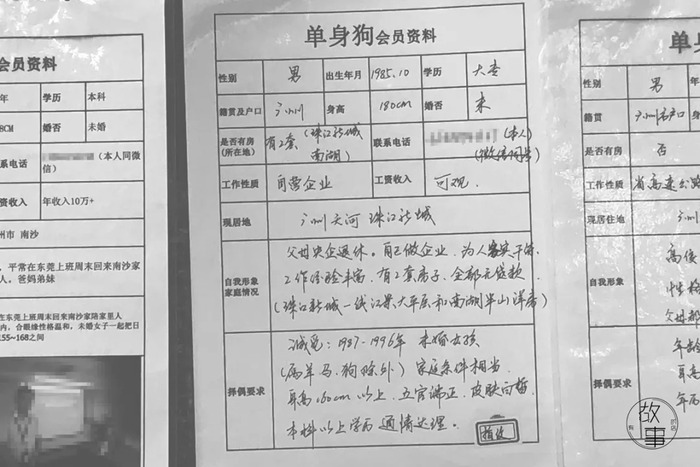 会员资料
年
学历
本科
8CM
婚否
未婚
系电话
(本人同微信)
资收入
年收入10万+
州市 南沙
，平常在东莞上班周末回来南沙家
人。爸妈弟妹
在东莞上班周末回来南沙家陪家里人
内，合眼缘性格温和，未婚女子一起把日
155~168之间
单身狗会员资料
性别
男
出生年月
1985.10
学历
大专
籍贯及户口
广州
身高
180cm
婚否
未
是否有房
(所在地)
有2套(珠江新城
南湖)
联系电话
(本人)
(微信同号)
工作性质
自营企业
工资收入
可观.
现居地
广州天河 珠江新城
自我形象
家庭情况
父母央企退休。自己做企业，为人
工作经验丰富，有2套房子，全部无贷款，
(珠江新城一线江景大平层和南湖半山洋房)
择偶要求
诚觅：1987-1996年 未婚女孩
(属羊马.狗除外) 家庭条件相当
身高160cm以上，五官端正，皮肤白皙
本科以上学历 通情达理。
单身
性别
男
籍贯
广州户口
是否有房
否
工作性质
现居住地
广州
自我形象
性格
父母都
择偶要求
年龄
身高
故事